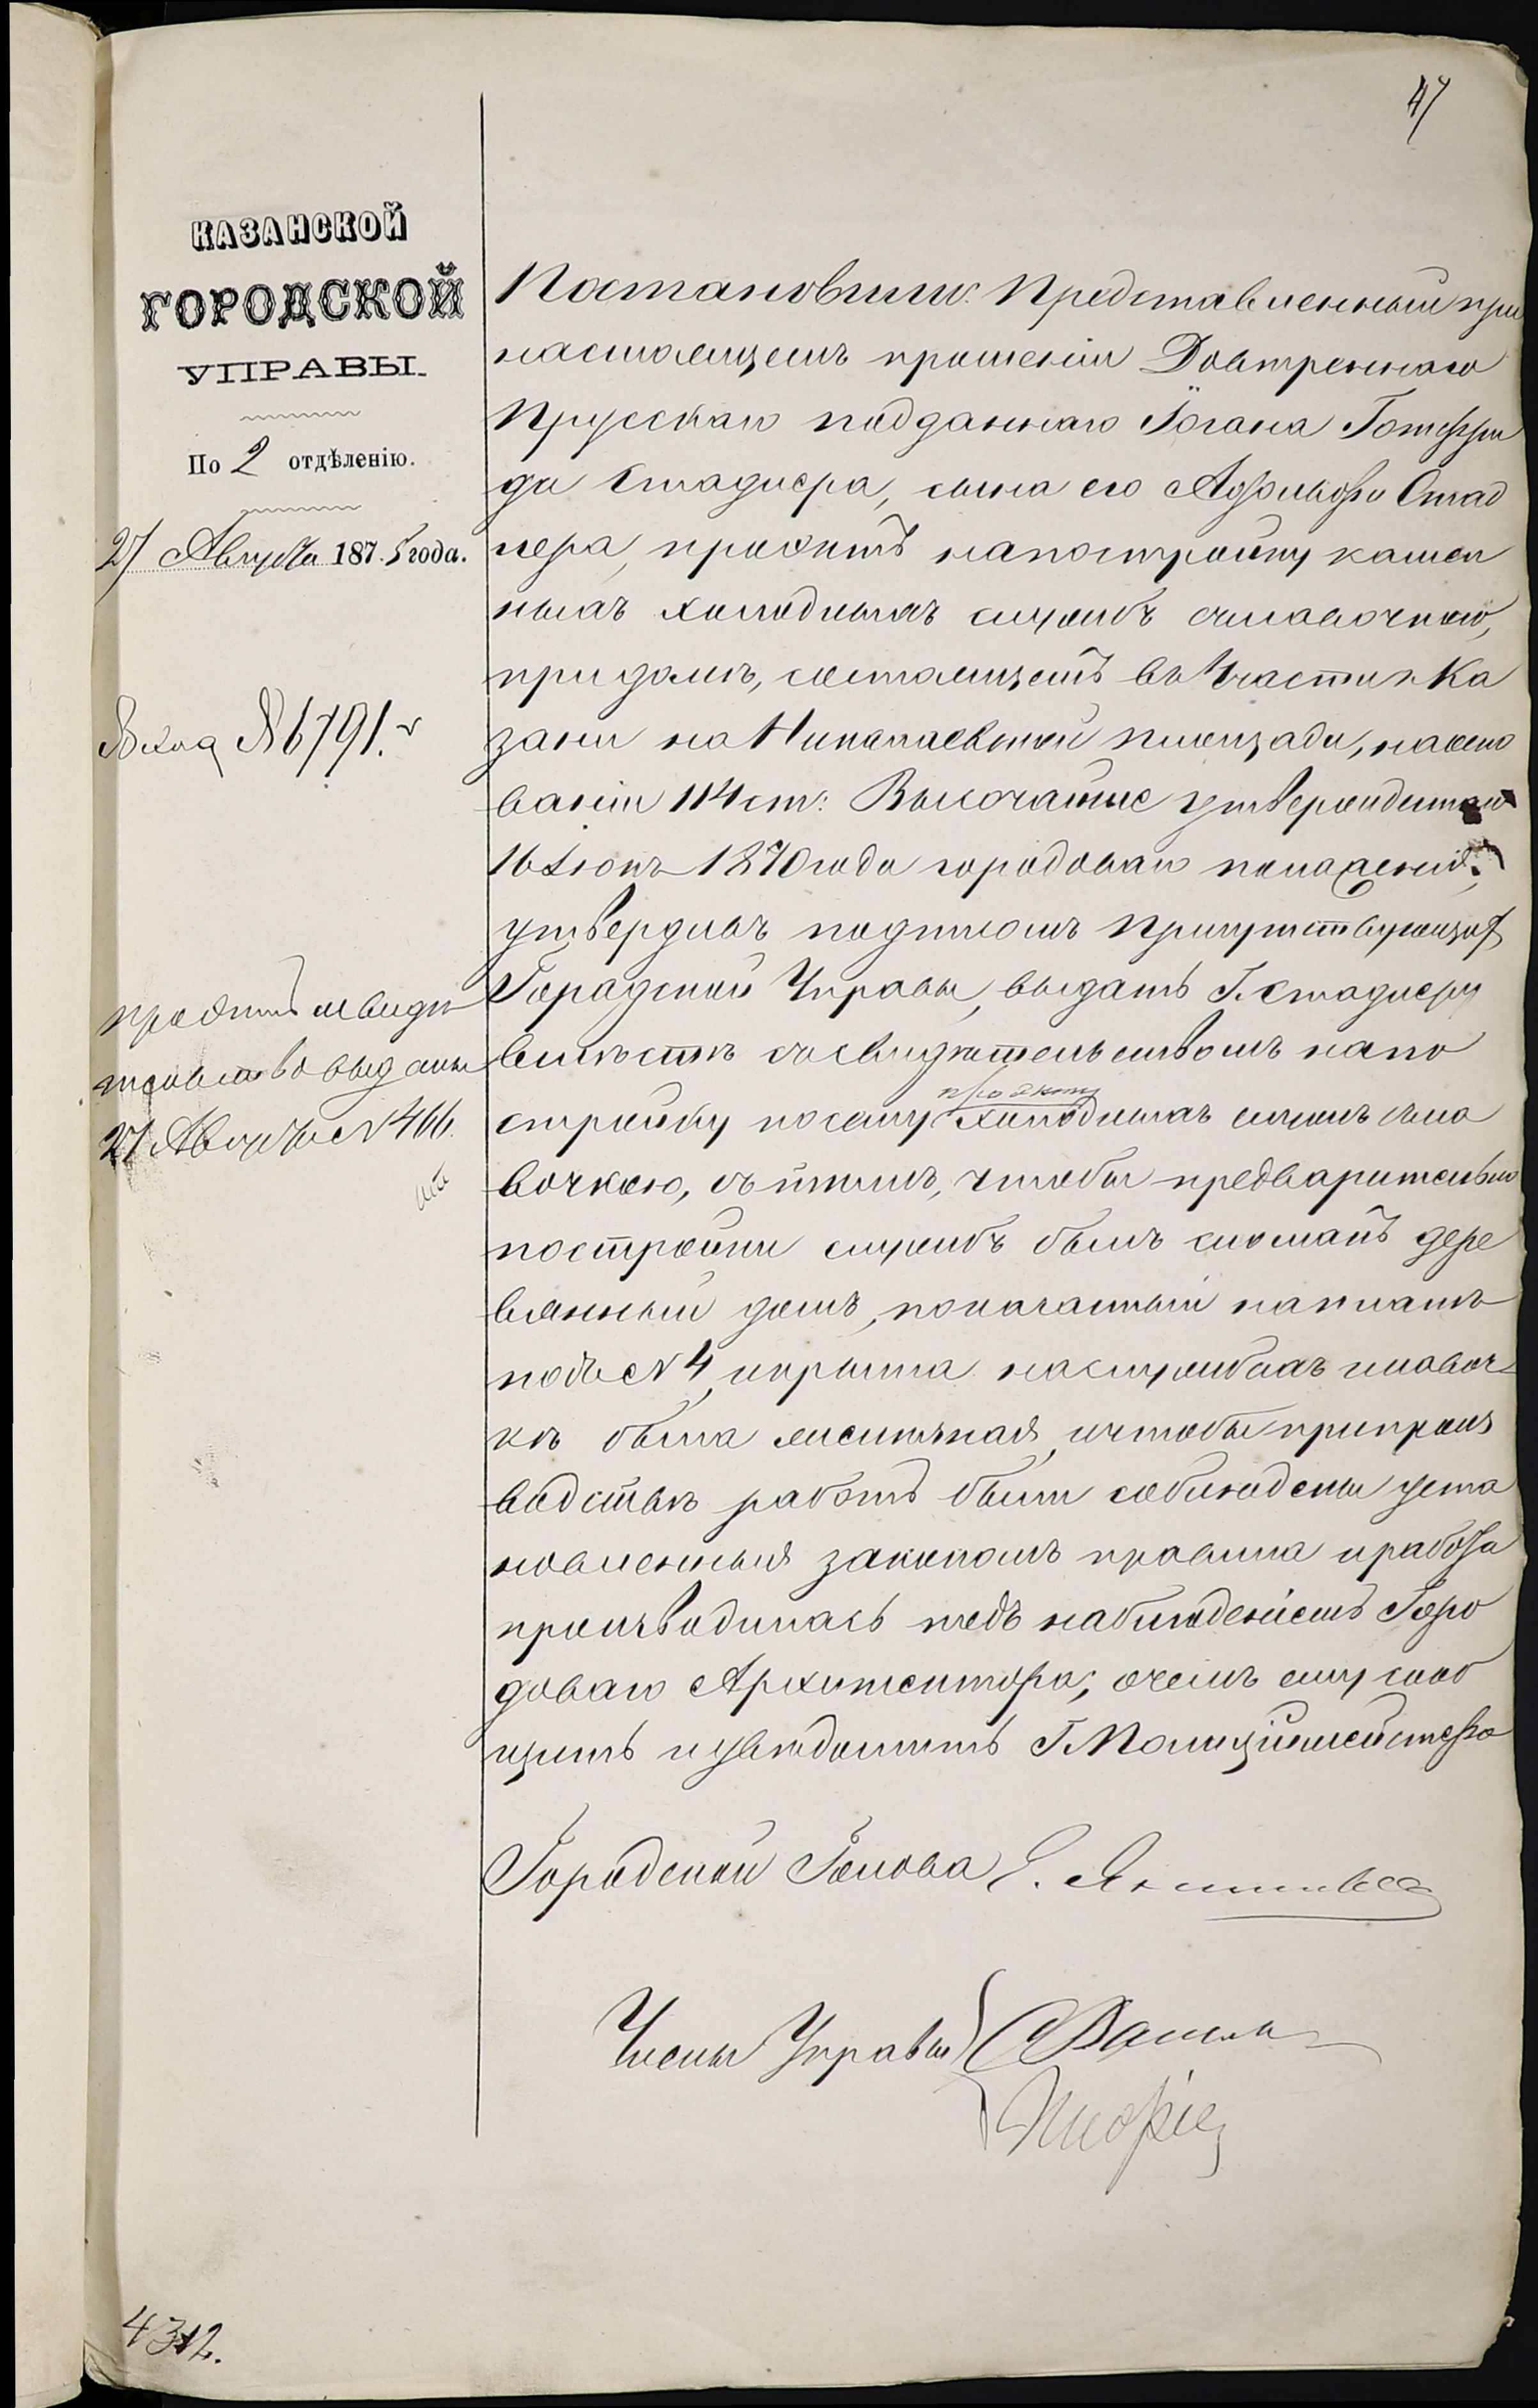 47
КАЗАНСКОЙ
ГОРОДСКОЙ
УПРАВЫ.
По 2 отдѣленію.
27 Августа 1875 года.
Вход № 6791.
проэктъ и свидѣ
тельство выданы
27 Августа № 466.
Постановили: Представленный при
настоящемъ прошеніи Довѣреннаго
Прусскаго подданнаго Іогана Готфри
да Стадлера, сына его Адольфа Стад
лера, проэктъ на постройку камен
ныхъ холодныхъ службъ съ лавочкою,
при домѣ, состоящемъ въ 1 части г. Ка
зани на Николаевской площади, на осно
ваніи 114 ст: Высочайше утвержденнаго
16 Іюня 1870 года городоваго положенія,
утвердивъ подписомъ присутствующихъ
Городской Управы, выдать Г. Стадлеру
вмѣстѣ со свидѣтельствомъ на по
проэкту
стройку по сему холодныхъ службъ съ ла
вочкою, съ тѣмъ, чтобы предварительно
постройки службъ былъ сломанъ дере
вянный домъ, показанный на планѣ
подъ № 4, и крыша на службахъ и лавоч
кѣ была желѣзная, и чтобы при произ
водствѣ работъ были соблюдены уста
новленныя закономъ правила и работа
производилась подъ наблюденіемъ Горо
доваго Архитектора; о чемъ ему сооб
щить и увѣдомить Г. Полиціймейстера
Городской Голова
Члены Управы
4312.